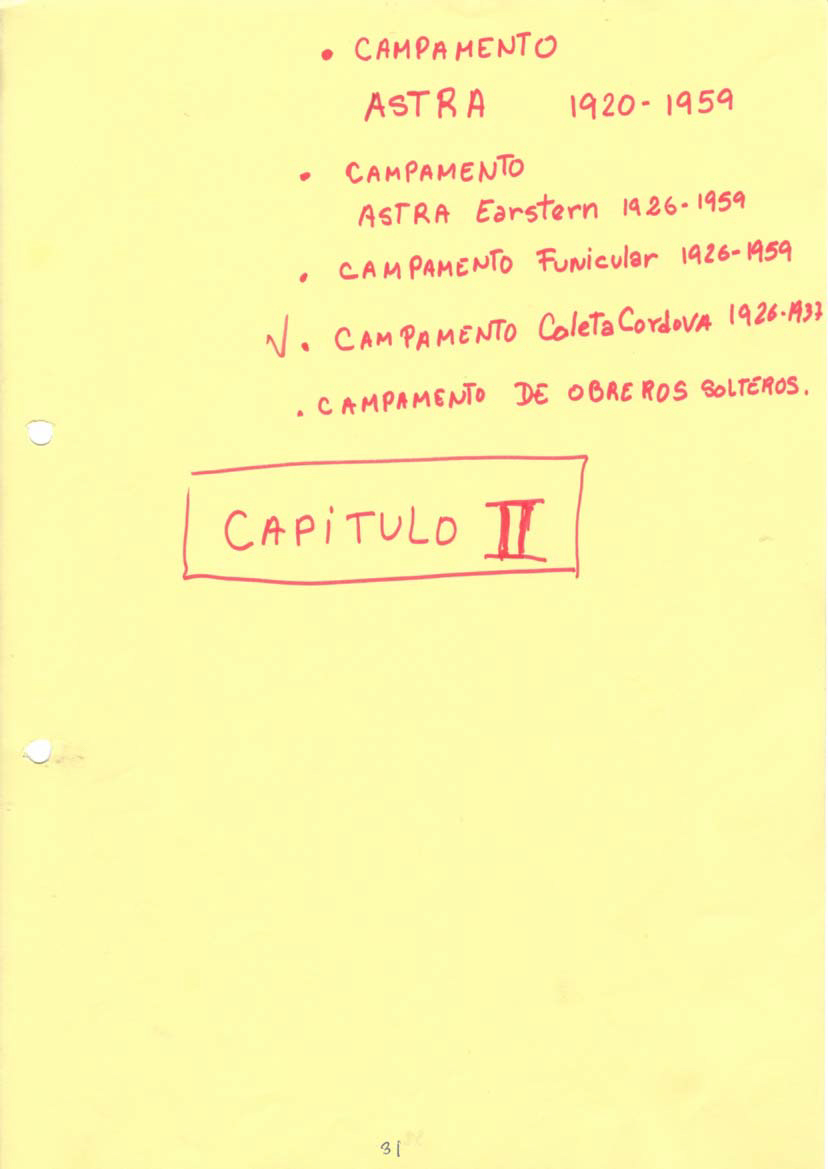 • CAMPAMENTO
ASTRA 1920-1959
• CAMPAMENTO
ASTRA Earstern 1926-1959
• CAMPAMENTO Funicular 1926-1959
√ • CAMPAMENTO Caleta CordovA 1926-1937
• CAMPAMENTO DE OBREROS SOLTEROS.
CAPiTULO II
31